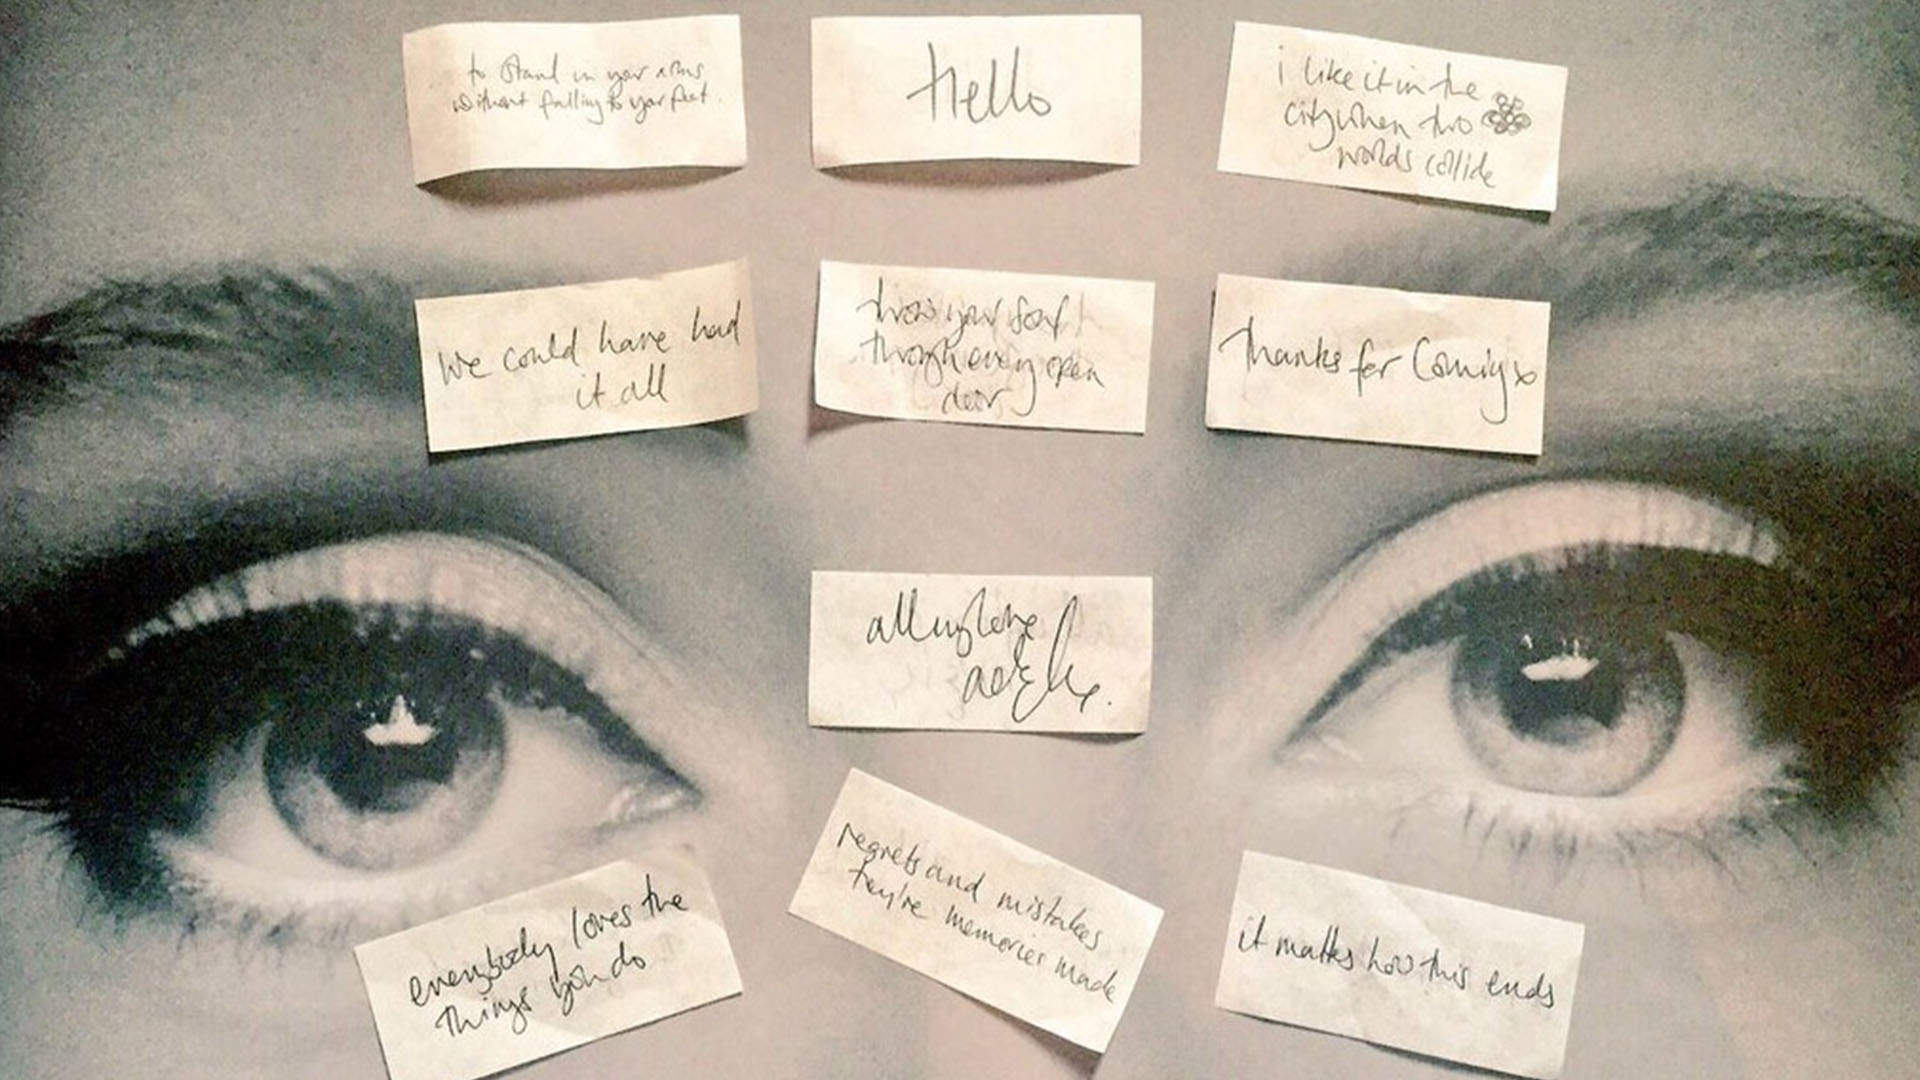 to stand in your arms
without falling to your feet.
Hello
i like it in the
city when two
worlds collide
We could have had
it all
throw your soul
through every open
door
Thanks for Coming x
all my love
adele.
everybody loves the
things you do
regrets and mistakes
they're memories made
it matters how this ends